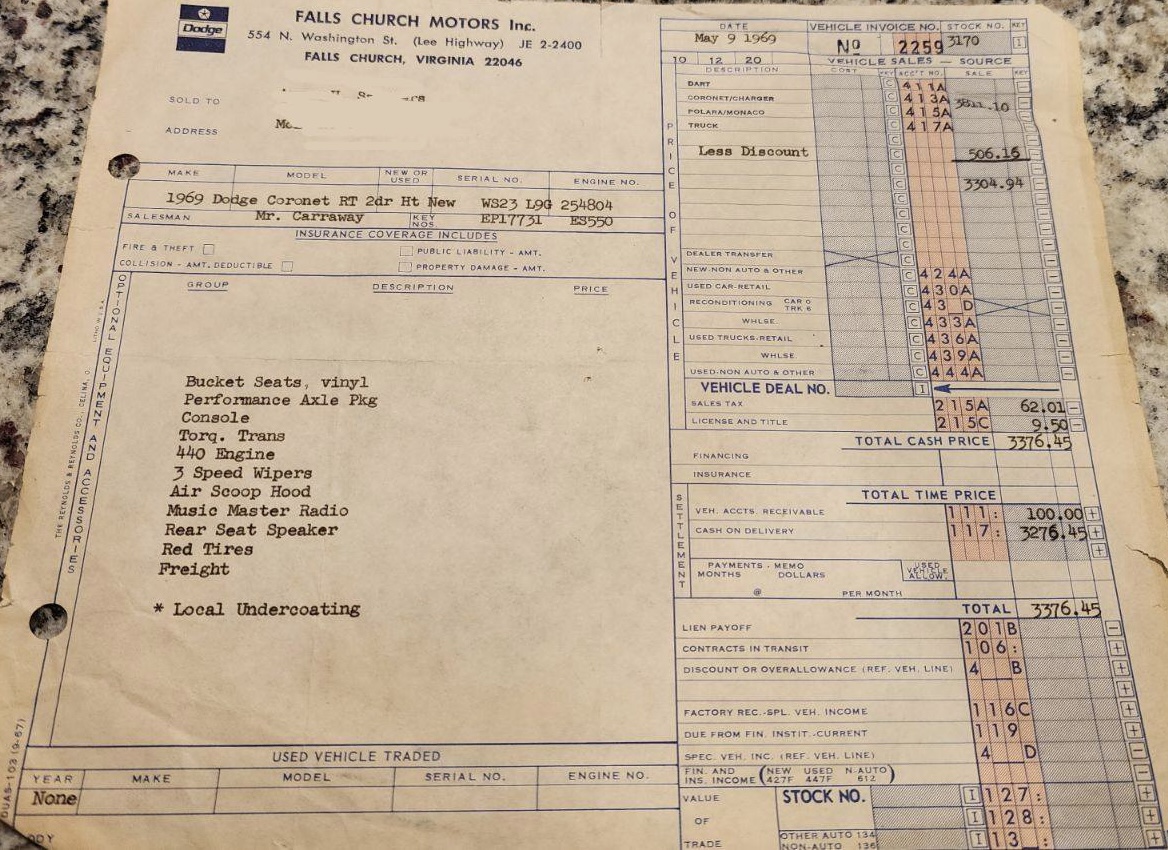 Dodge
FALLS CHURCH MOTORS Inc.
554 N. Washington St. (Lee Highway) JE 2-2400
FALLS CHURCH, VIRGINIA 22046
SOLD TO
ADDRESS
MAKE MODEL NEW OR USED SERIAL NO. ENGINE NO.
1969 Dodge Coronet RT 2dr Ht New WS23 L9G 254804
SALESMAN Mr. Carraway KEY NOS EP17731 ES550
INSURANCE COVERAGE INCLUDES
FIRE & THEFT PUBLIC LIABILITY - AMT.
COLLISION - AMT. DEDUCTIBLE PROPERTY DAMAGE - AMT.
OPTIONAL EQUIPMENT AND ACCESSORIES
GROUP DESCRIPTION PRICE
Bucket Seats, vinyl
Performance Axle Pkg
Console
Torq. Trans
440 Engine
3 Speed Wipers
Air Scoop Hood
Music Master Radio
Rear Seat Speaker
Red Tires
Freight
* Local Undercoating
THE REYNOLDS & REYNOLDS CO., CELINA, O.
DUAS-103 (9-67)
USED VEHICLE TRADED
YEAR MAKE MODEL SERIAL NO. ENGINE NO.
None
DATE VEHICLE INVOICE NO. STOCK NO. KEY
May 9 1969 No 2259 3170 I
10 12 20 VEHICLE SALES - SOURCE
DESCRIPTION COST KEY ACC'T NO. SALE KEY
PRICE OF VEHICLE
DART C 411A
CORONET/CHARGER C 413A
POLARA/MONACO C 415A
TRUCK C 417A
Less Discount C 506.16
C 3304.94
C
C
C
C
DEALER TRANSFER
NEW-NON AUTO & OTHER C 424A
USED CAR-RETAIL C 430A
RECONDITIONING CAR 0 TRK 6 C 43 D
WHLSE. C 433A
USED TRUCKS-RETAIL C 436A
WHLSE. C 439A
USED-NON AUTO & OTHER C 444A
VEHICLE DEAL NO. I
SALES TAX 215A 62.01
LICENSE AND TITLE 215C 9.50
TOTAL CASH PRICE 3376.45
FINANCING
INSURANCE
TOTAL TIME PRICE
SETTLEMENT
VEH. ACCTS. RECEIVABLE 111: 100.00 +
CASH ON DELIVERY 117: 3276.45 +
+
PAYMENTS - MEMO USED VEHICLE ALLOW.
MONTHS DOLLARS
@ PER MONTH
TOTAL 3376.45
LIEN PAYOFF 201B -
CONTRACTS IN TRANSIT 106: +
DISCOUNT OR OVERALLOWANCE (REF. VEH. LINE) 4 B +
+
FACTORY REC.-SPL. VEH. INCOME 116C +
DUE FROM FIN. INSTIT.-CURRENT 119 +
SPEC. VEH. INC. (REF. VEH. LINE) 4 D -
FIN. AND INS. INCOME (NEW 427F USED 447F N-AUTO 612) -
VALUE STOCK NO. I 127: +
OF I 128: +
TRADE OTHER AUTO 134 NON-AUTO 136 I 13 : +